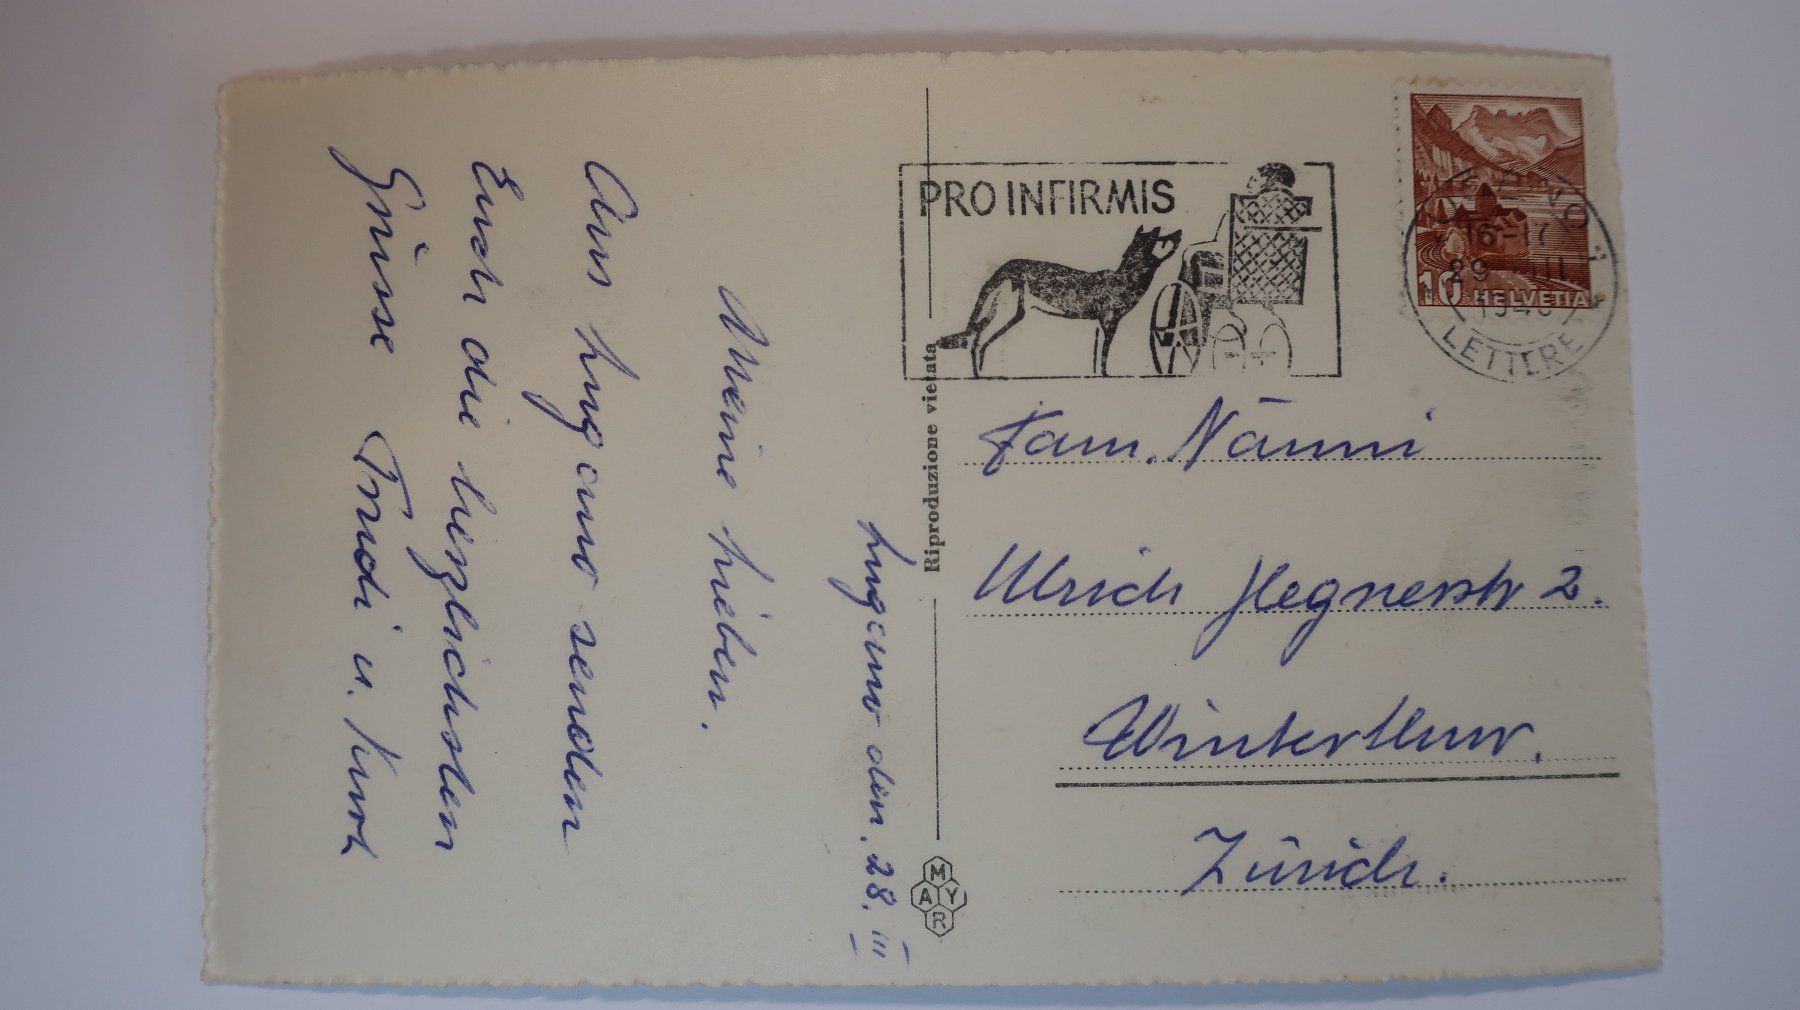 Lugano den. 28. III
Meine Lieben.
Aus Lugano senden
Euch die herzlichsten
Grüsse Trudi u. Kurt
Riproduzione vietata
MARY
PRO INFIRMIS
10 HELVETIA
16-17
29 III
LETTERE
Fam. Nänni
Ulrich Hegnerstr 2.
Winterthur.
Zürich.